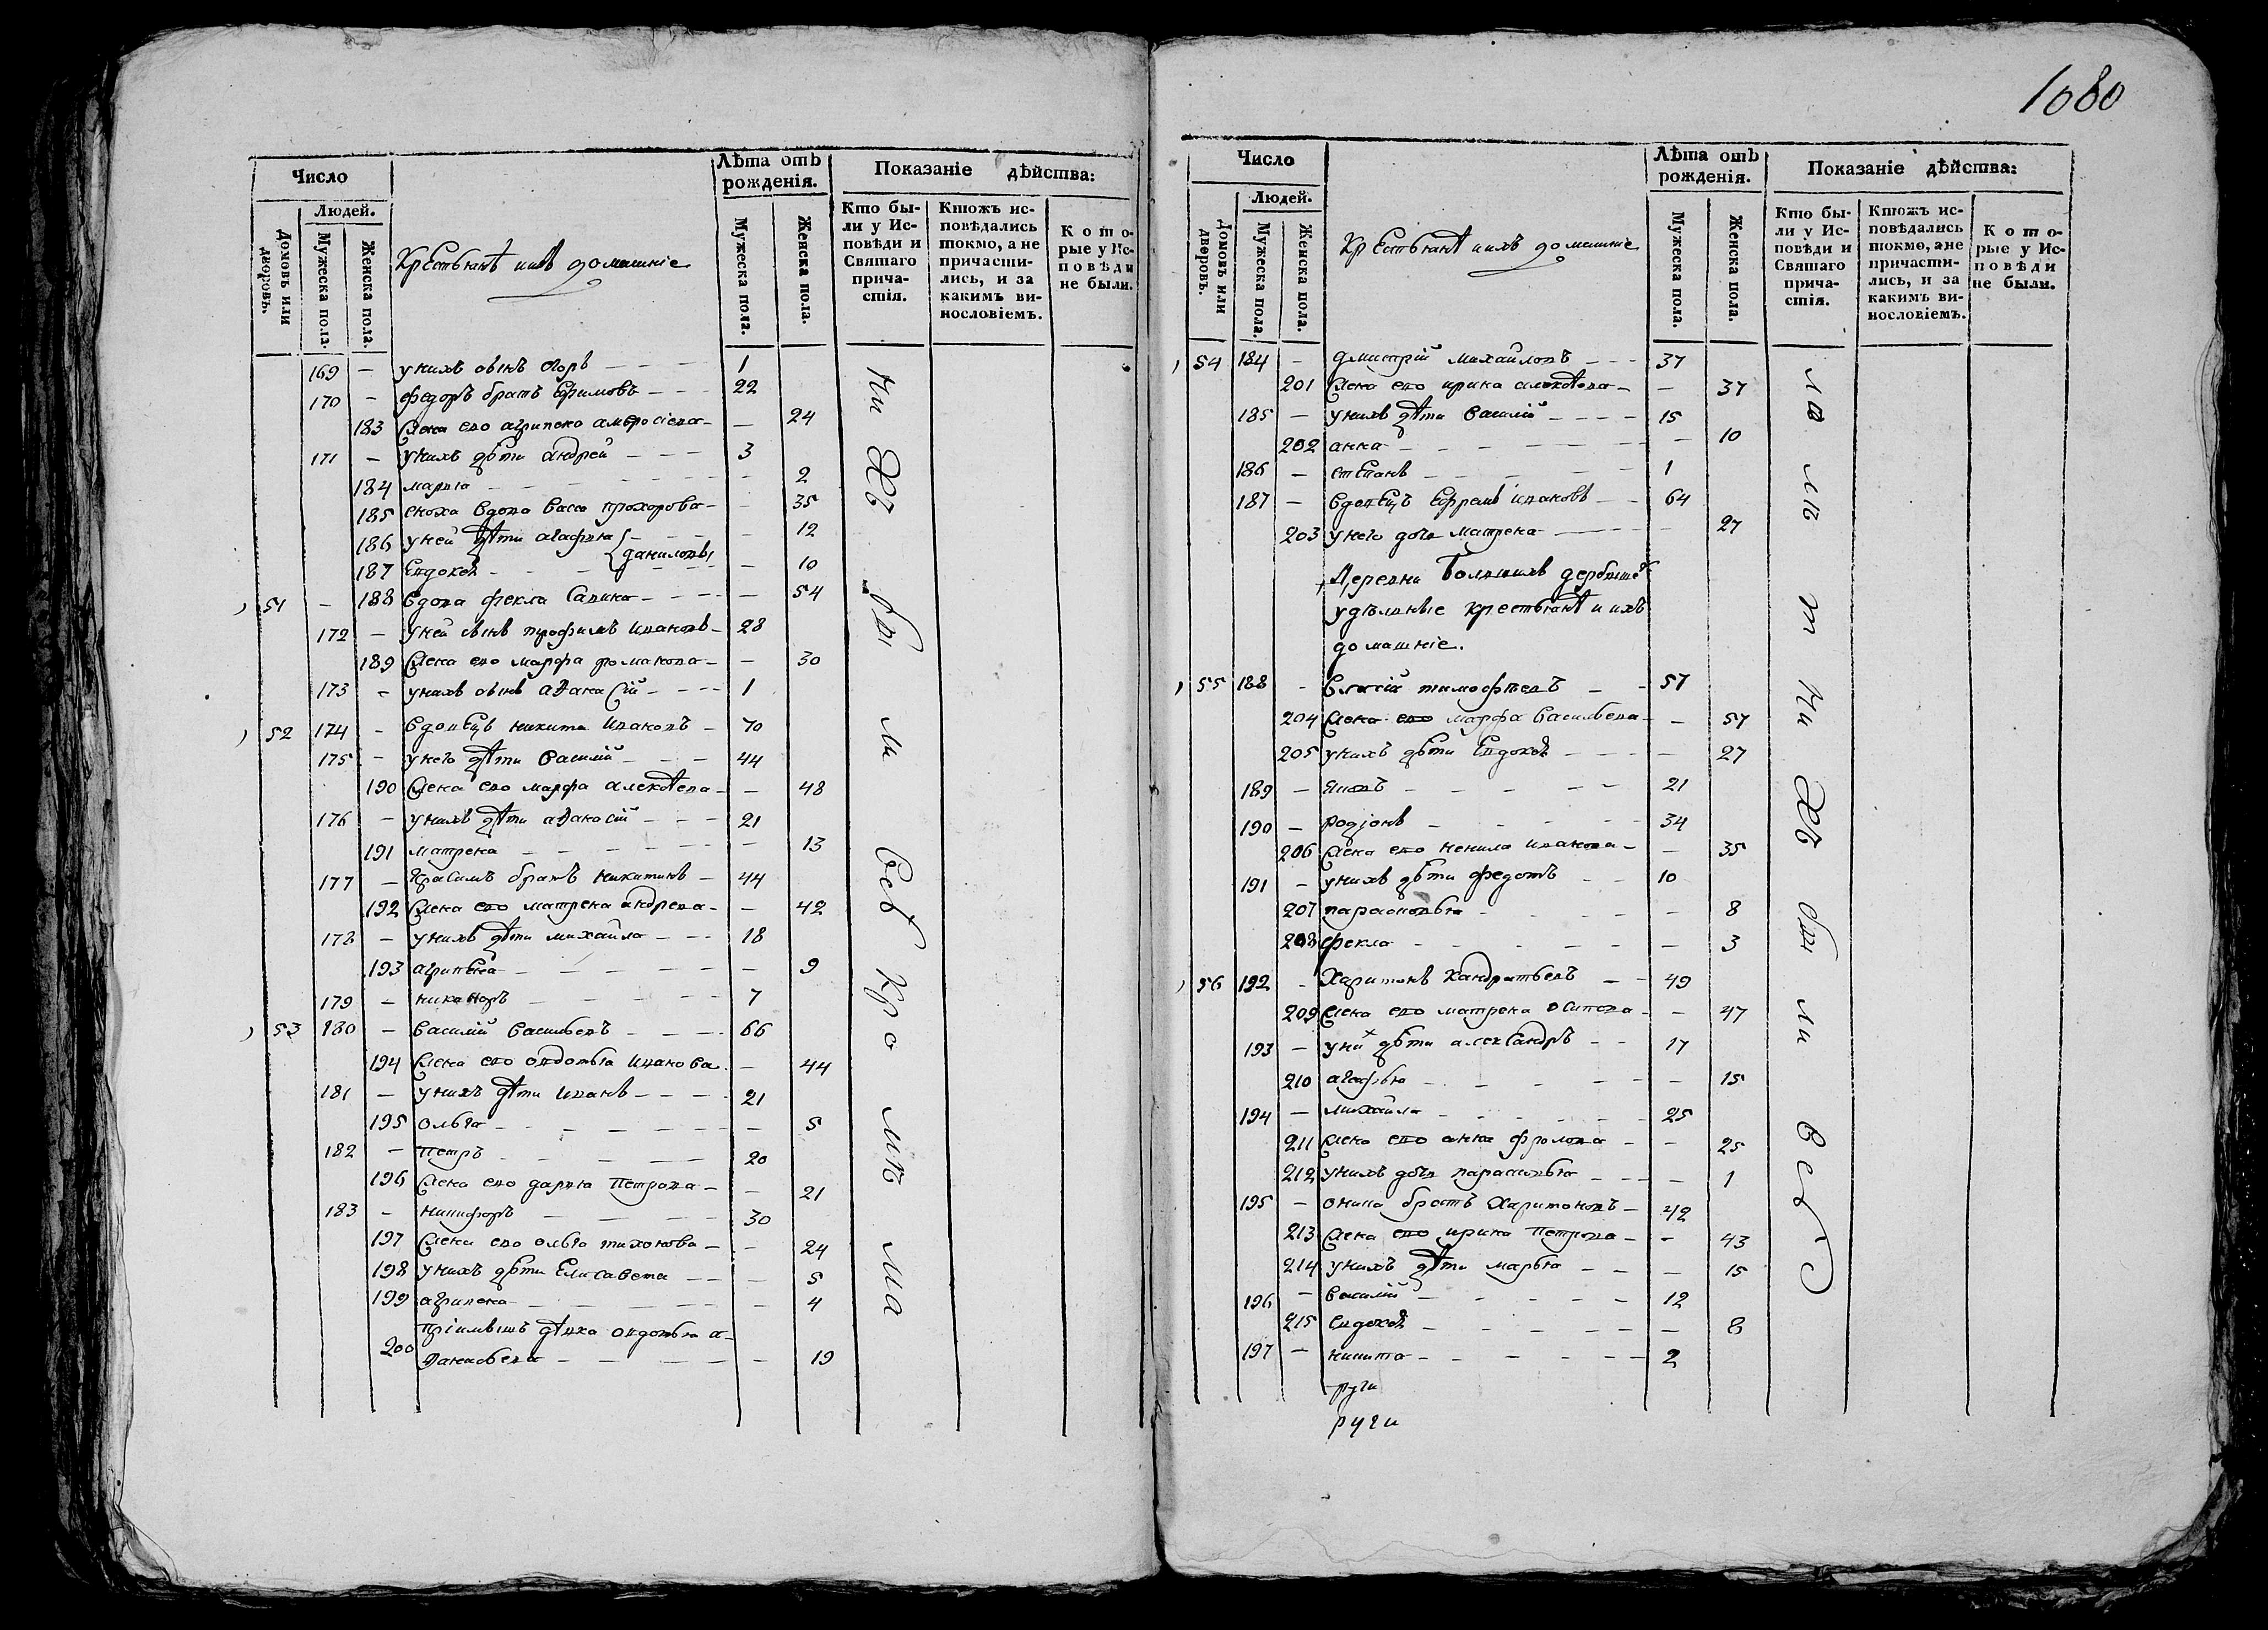 1080
Число
Лѣта отъ рожденія.
Показаніе дѣйства:
Людей.
Домовъ или дворовъ.
Мужеска пола.
Женска пола.
Крестьянѣ иихъ домашніе
Мужеска пола.
Женска пола.
Кто были у Исповѣди и Святаго причастія.
Ктожъ исповѣдались токмо, а не причастились, и за какимъ винословіемъ.
Которые у Исповѣди не были.
169 — унихъ сынъ 1
170 — федоръ братъ Ефимовъ — 22
183 жена ево агрипена амвросіева — 24
171 — унихъ дѣти андрей — 3
184 марья — 2
185 сноха вдова васса прохорова — 35
186 уней дѣти агафья — 12
данилов
187 Евдокея — 10
51 — 188 вдова фекла савина — 54
172 — уней сынъ трофимъ ивановъ — 28
189 жена ево марфа романова — 30
173 — унихъ сынъ афанасій — 1
52 174 — вдовецъ никита ивановъ — 70
175 — унего дѣти василій — 44
190 жена ево марфа алексѣева — 48
176 — унихъ дѣти афанасій — 21
191 матрена — 13
177 — братъ никитинъ — 44
192 жена ево матрена андреева — 42
178 — унихъ дѣти михайла — 18
193 агрипена — 9
179 — никаноръ — 7
53 180 — василій васильевъ — 66
194 жена ево овдотья иванова — 44
181 — унихъ дѣти иванъ — 21
195 ольга — 5
182 — петръ — 20
196 жена ево дарья петрова — 21
183 — никифоръ — 30
197 жена ево ольга тихонова — 24
198 унихъ дѣти Елисавета — 5
199 агрипена — 4
200 пріимышъ дѣвка овдотья а-
фанасьева — 19
Число
Лѣта отъ рожденія.
Показаніе дѣйства:
Людей.
Домовъ или дворовъ.
Мужеска пола.
Женска пола.
Крестьянѣ иихъ домашніе
Мужеска пола.
Женска пола.
Кто были у Исповѣди и Святаго причастія.
Ктожъ исповѣдались токмо, а не причастились, и за какимъ винословіемъ.
Которые у Исповѣди не были.
54 184 — дмитрій михайловъ — 37
201 жена ево ирина алексѣева — 37
185 — унихъ дѣти василій — 15
202 анна — 10
186 — степанъ — 1
187 — вдовецъ Ефремъ ивановъ — 64
203 унего дочь матрена — 27
Деревни Большихъ дербыше
удѣльные крестьянѣ и ихъ
домашніе.
55 188 — тимофѣевъ — 57
204 жена ево марфа васильева — 57
205 унихъ дѣти Евдокея — 27
189 — яковъ — 21
190 — родіонъ — 34
206 жена ево ненила иванова — 35
191 — унихъ дѣти федотъ — 10
207 парасковья — 8
208 фекла — 3
56 192 — Харитонъ Кандратьевъ — 49
209 жена ево матрена осипова — 47
193 — уних дѣти александръ — 17
210 агафья — 15
194 — михайла — 25
211 жена ево анна фролова — 25
212 унихъ дочь парасковья — 1
195 — братъ Харитоновъ — 42
213 жена ево ирина петрова — 43
214 унихъ дѣти марья — 15
196 — василій — 12
215 Евдокея — 8
197 — никита — 2
руги
руги